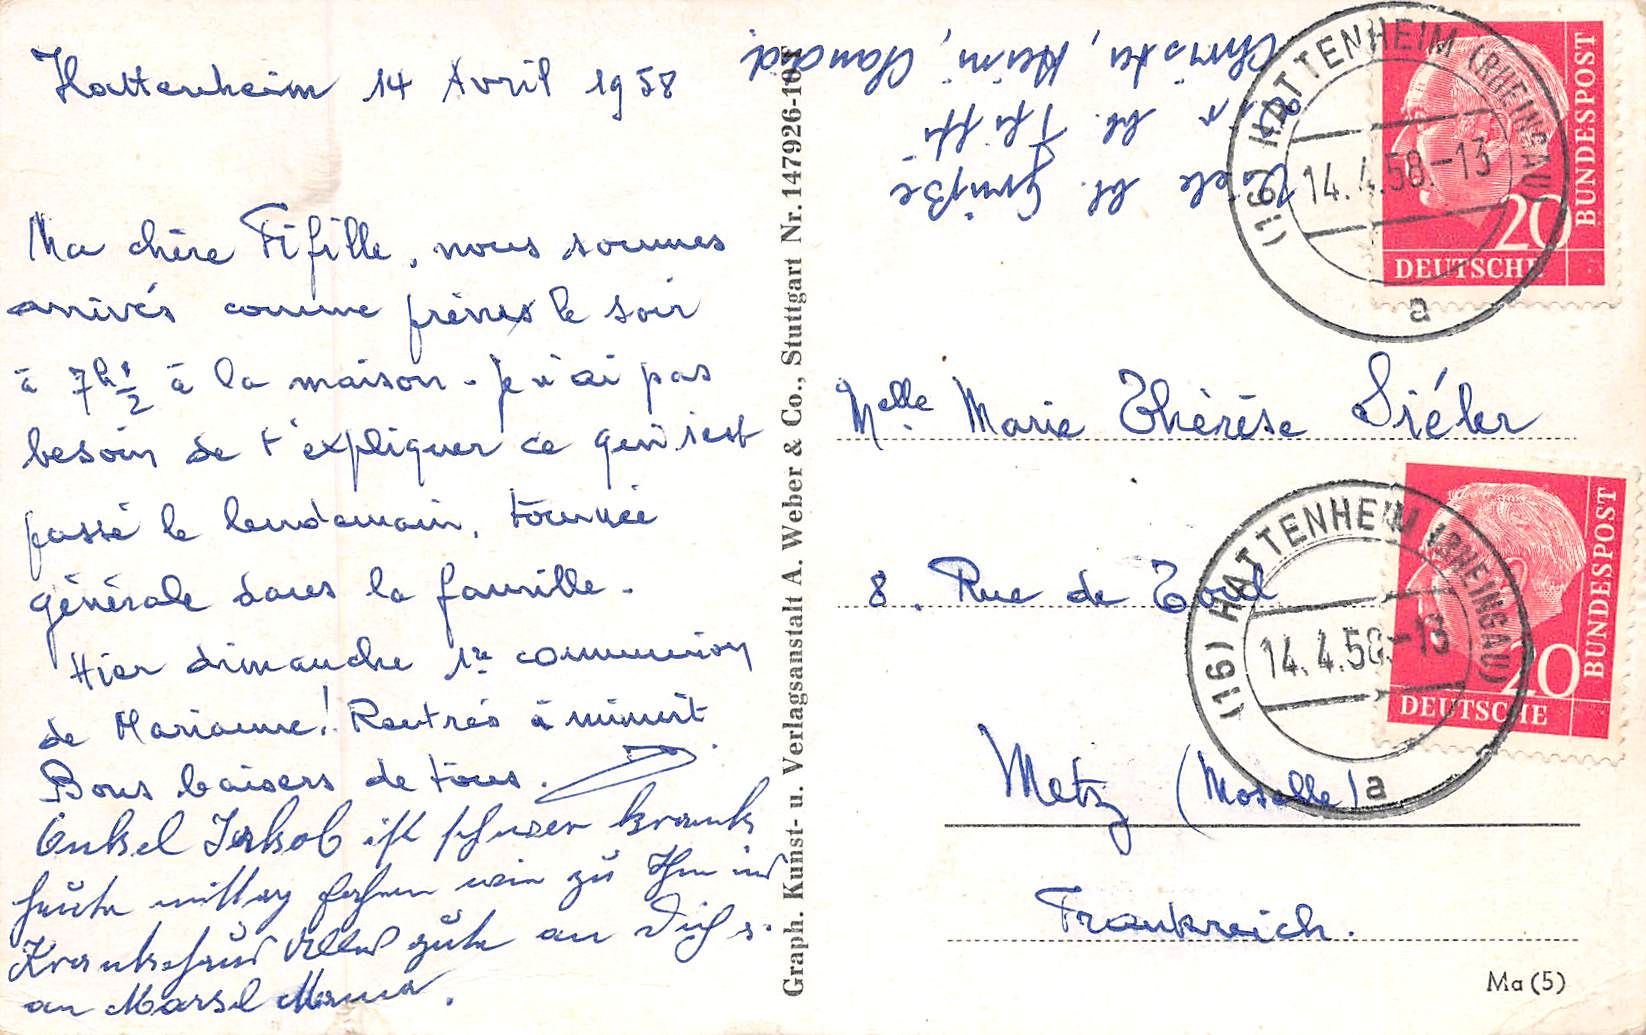 Hattenheim 14 Avril 1958
Ma chère Fifille, nous sommes
arrivés comme prévus le soir
à 7h 1/2 à la maison. Je n'ai pas
besoin de t'expliquer ce qui s'est
passé le lendemain, tournée
générale dans la famille.
Hier dimanche 1re communion
de Marianne! Rentrés à minuit.
Bons baisers de tous.
Onkel Jakob ist schwer krank
heute mittag fahren wir zu Ihm ins
Krankenhaus Alles gute an Dich u.
an Marsel Mama.
Graph. Kunst- u. Verlagsanstalt A. Weber & Co., Stuttgart Nr. 147926-10
Viele hl. Grüße
Christa, Heini,
(16) HATTENHEIM (RHEINGAU)
14.4.58.-13
a
DEUTSCHE BUNDESPOST
20
Melle Marie Thérèse Siéler
8. Rue de
Metz (Moselle)
Frankreich.
(16) HATTENHEIM (RHEINGAU)
14.4.58.-13
a
DEUTSCHE BUNDESPOST
20
Ma (5)